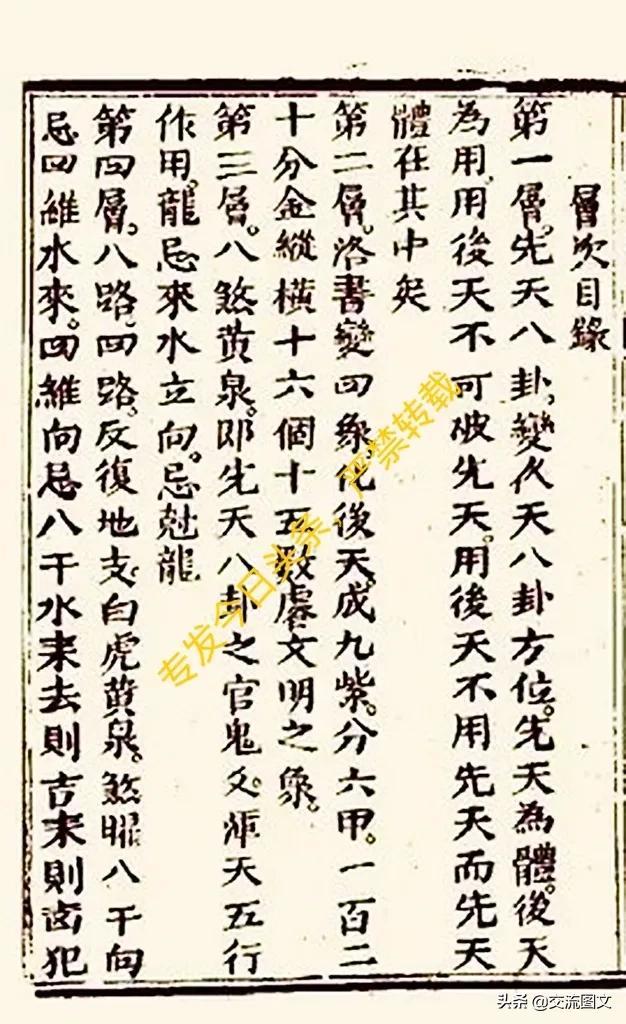 層次目錄
第一層。先天八卦。變後天八卦方位。先天為體。後天
為用。用後天不可破先天。用後天不用先天而先天
體在其中矣
第二層。洛書變四象。化後天。成九紫。分六甲。一百二
十分金縱橫十六個十五數。處文明之象。
第三層。八煞黃泉。即先天八卦之官鬼爻。渾天五行
作用。龍忌來水立向。忌尅龍
第四層。八路四路。反復地支白虎黃泉。煞曜八干向
忌四維水來。四維向忌八干水來去則吉來則凶犯
专发今日头条，严禁转载
头条 @交流图文